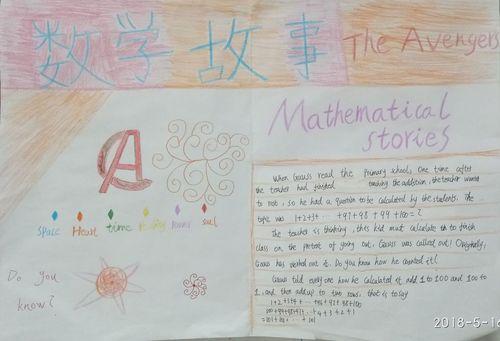 数学故事
The Avengers
Mathematical
stories
space Heart time power soul
Do you
know?
When Gauss read the primary school, One time after
the teacher had finished teaching the addition, the teacher wanted
to rest, so he had a question to be calculated by the students. The
topic was 1+2+3+ ··· +97+98+99+100=?
The teacher is thinking, this kid must calculate to finish
class on the pretext of going out, Gauss was called out! Originally,
Gauss has worked out it. Do you know how he counted it?
Gauss told every one how he calculated it add 1 to 100 and 100 to
1, and then add up to two rows, that is to say
1+2+3+4+ ··· +96+97+98+99+100
+4+3+2+1
=101+101+ ··· +101
2018-5-16